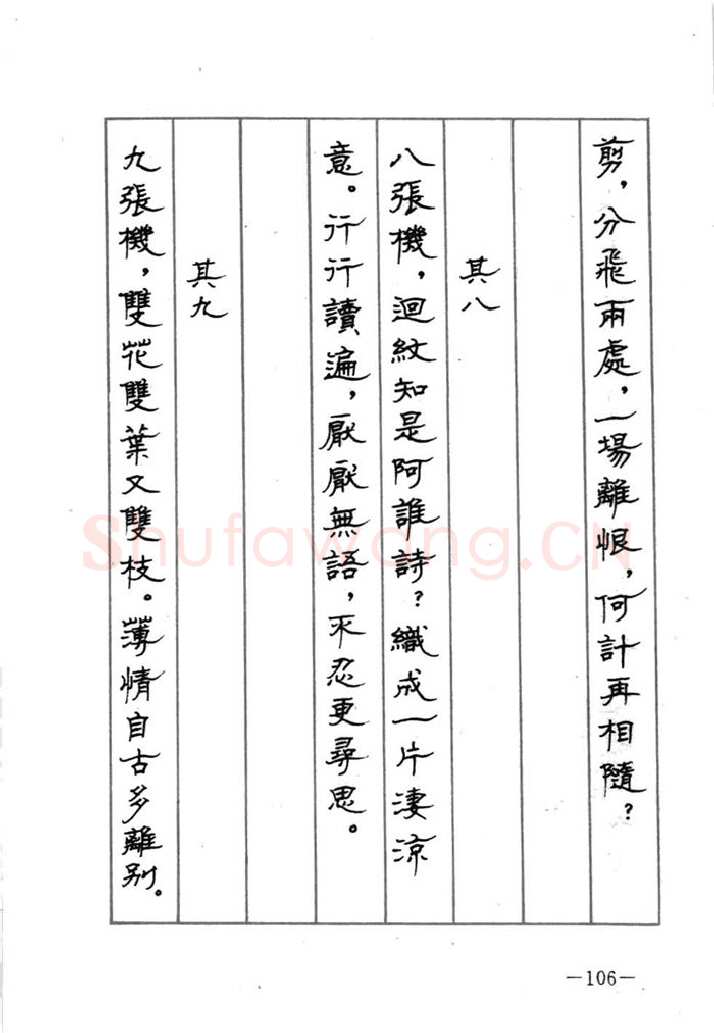 剪，分飛兩處，一場離恨，何計再相隨？
其八
八張機，迴紋知是阿誰詩？織成一片淒涼
意。行行讀遍，厭厭無語，不忍更尋思。
其九
九張機，雙花雙葉又雙枝。薄情自古多離别。
Shufawang.CN
—106—